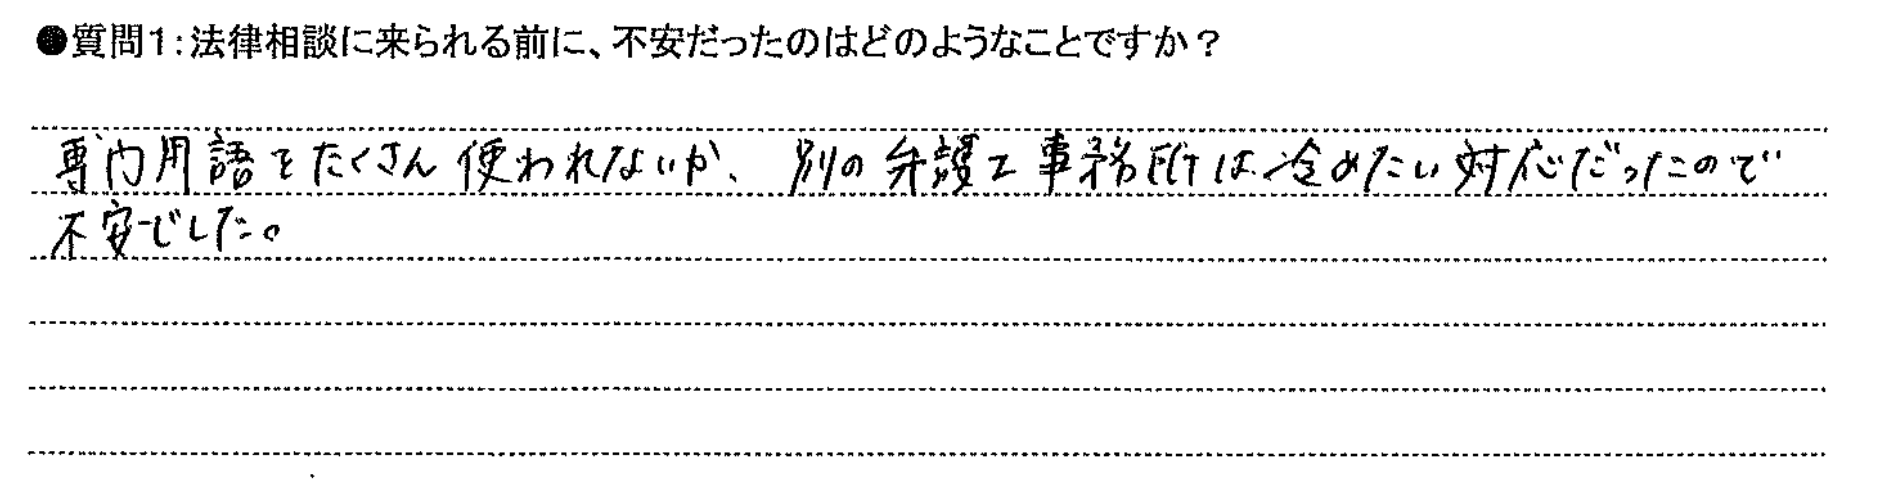 ●質問1:法律相談に来られる前に、不安だったのはどのようなことですか？
専門用語をたくさん使われないか、別の弁護士事務所は冷めたい対応だったので
不安でした。